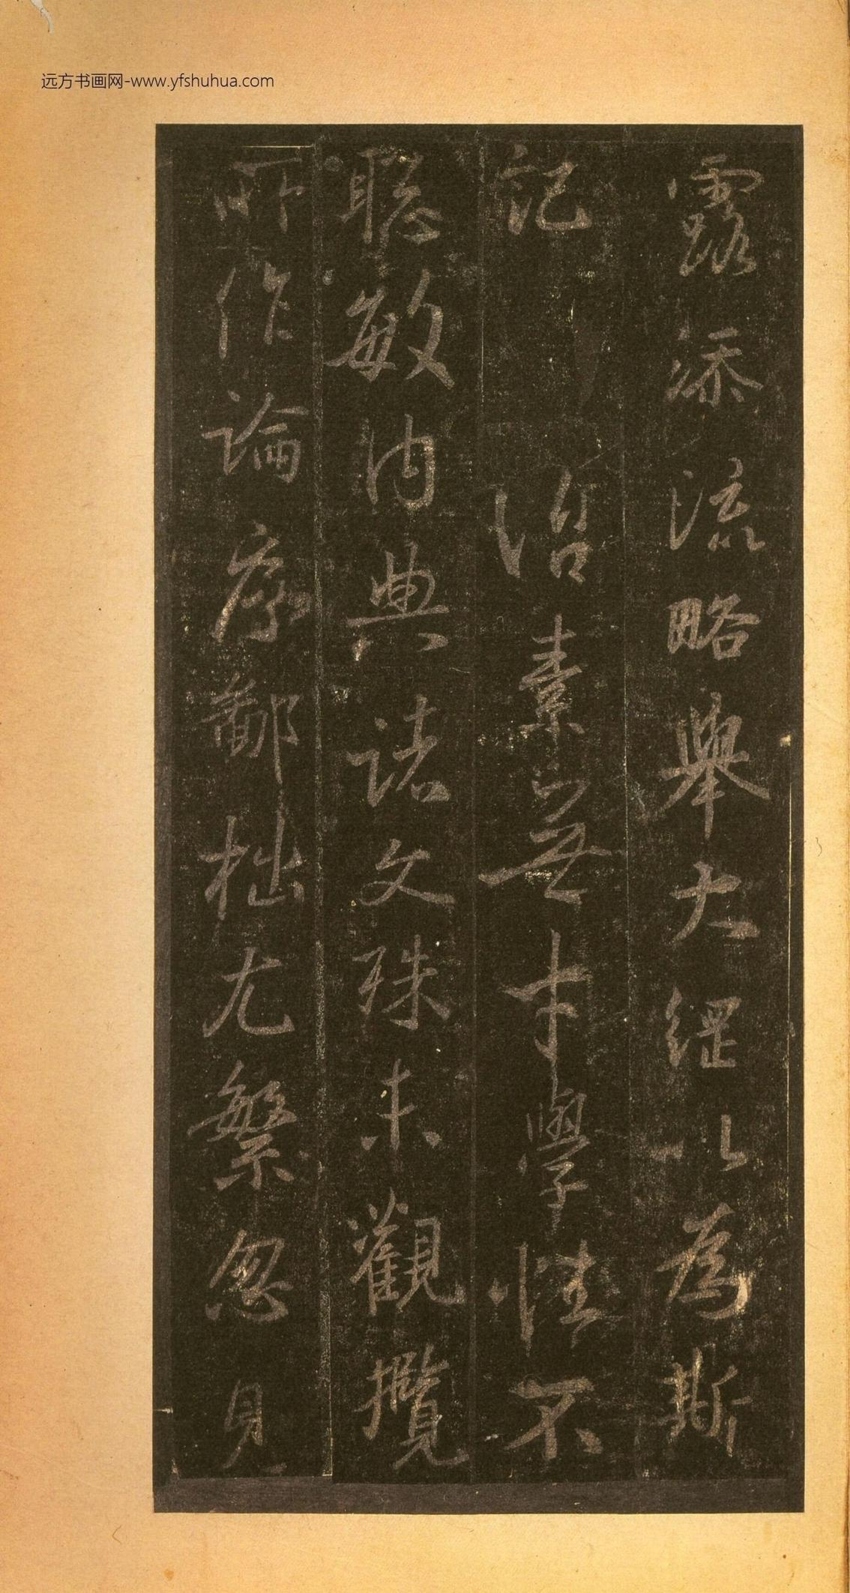 远方书画网-www.yfshuhua.com
露添流略舉大綱以為斯
記
治素無才學性不
聰敏內典諸文殊未觀攬
所作論序鄙拙尤繁忽見